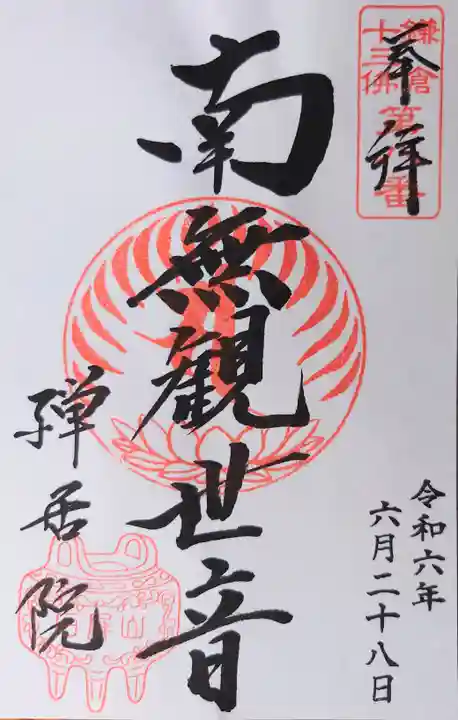 奉拝
鎌倉
十三佛
南無観世音
禅居院
令和六年
六月二十八日